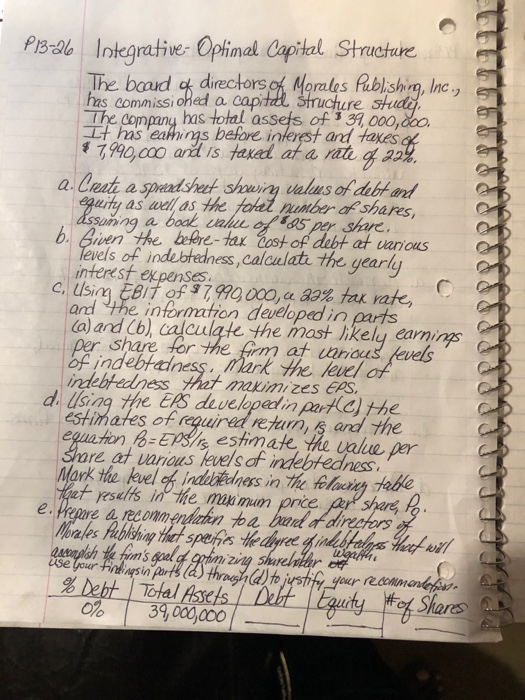 P13-26 Integrative-Optimal Capital Structure
The board of directors of Morales Publishing, Inc.,
has commissioned a capital structure study.
The company has total assets of $39,000,000.
It has earnings before interest and taxes of
$7,990,000 and is taxed at a rate of 22%.
a. Create a spreadsheet showing values of debt and
equity as well as the total number of shares,
assuming a book value of $25 per share.
b. Given the before-tax cost of debt at various
levels of indebtedness, calculate the yearly
interest expenses.
c. Using EBIT of $7,990,000, a 22% tax rate,
and the information developed in parts
(a) and (b), calculate the most likely earnings
per share for the firm at various levels
of indebtedness. Mark the level of
indebtedness that maximizes EPS.
d. Using the EPS developed in part (c) the
estimates of required return, rs and the
equation P0=EPS/rs estimate the value per
share at various levels of indebtedness.
Mark the level of indebtedness in the following table
that results in the maximum price per share, P0.
e. Prepare a recommendation to a board of directors of
Morales Publishing that specifies the degree of indebtedness that will
accomplish the firm's goal of optimizing shareholder wealth.
Use your findings in parts (a) through (d) to justify your recommendation.
% Debt Total Assets Debt Equity # of Shares
0% 39,000,000